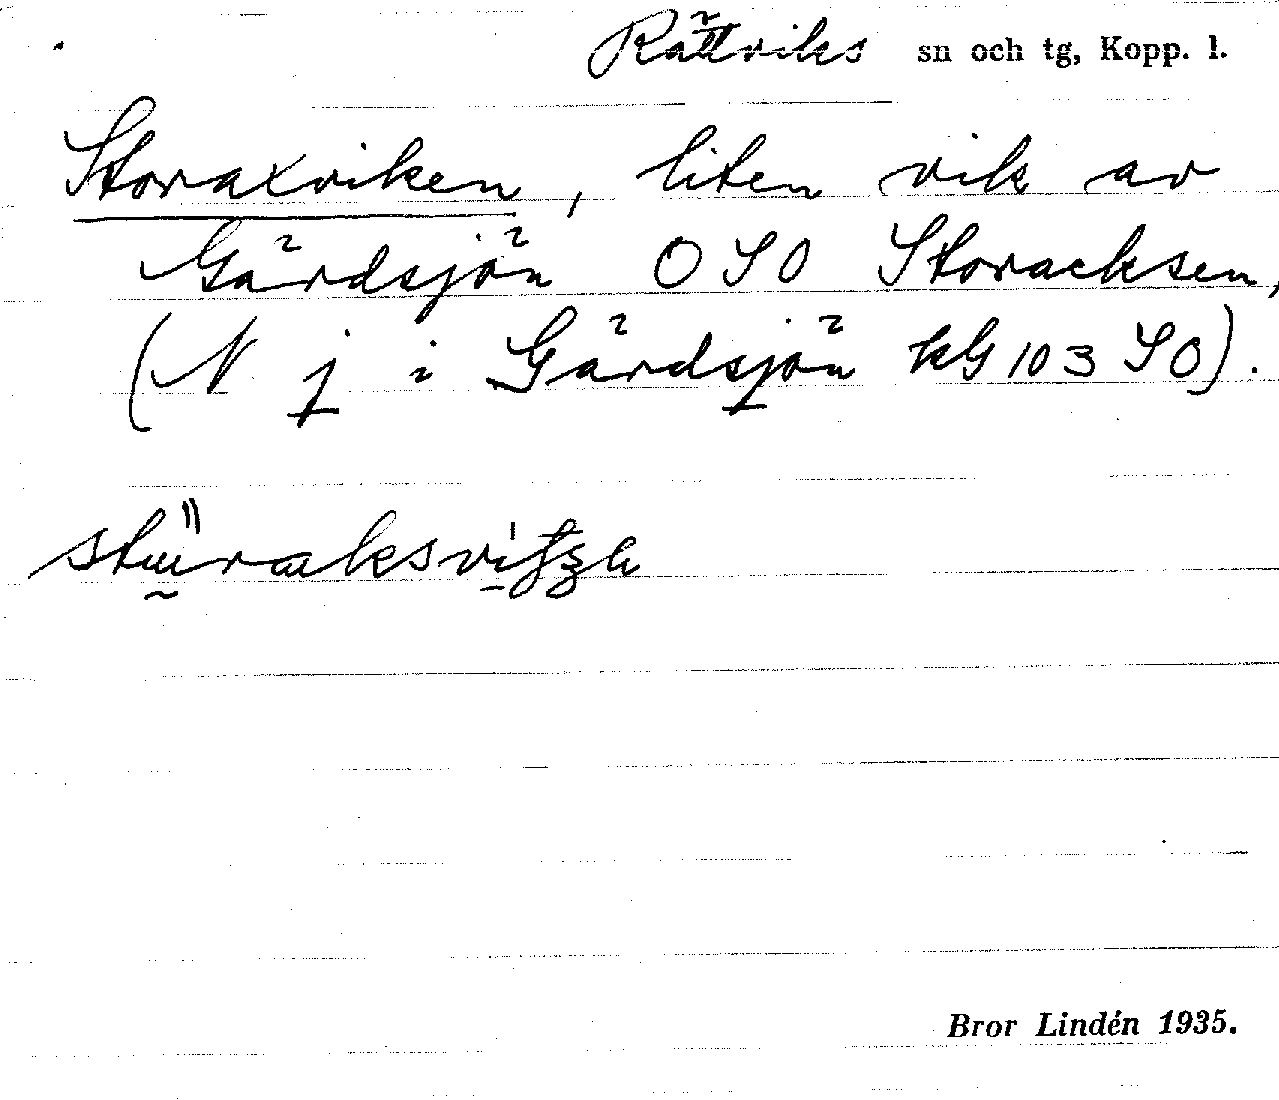 Rättviks sn och tg, Kopp. l.
Storaxviken, liten vik av
Gärdsjön OSO Storacksen,
(N j i Gärdsjön kG 103 SO).
Bror Lindén 1935.